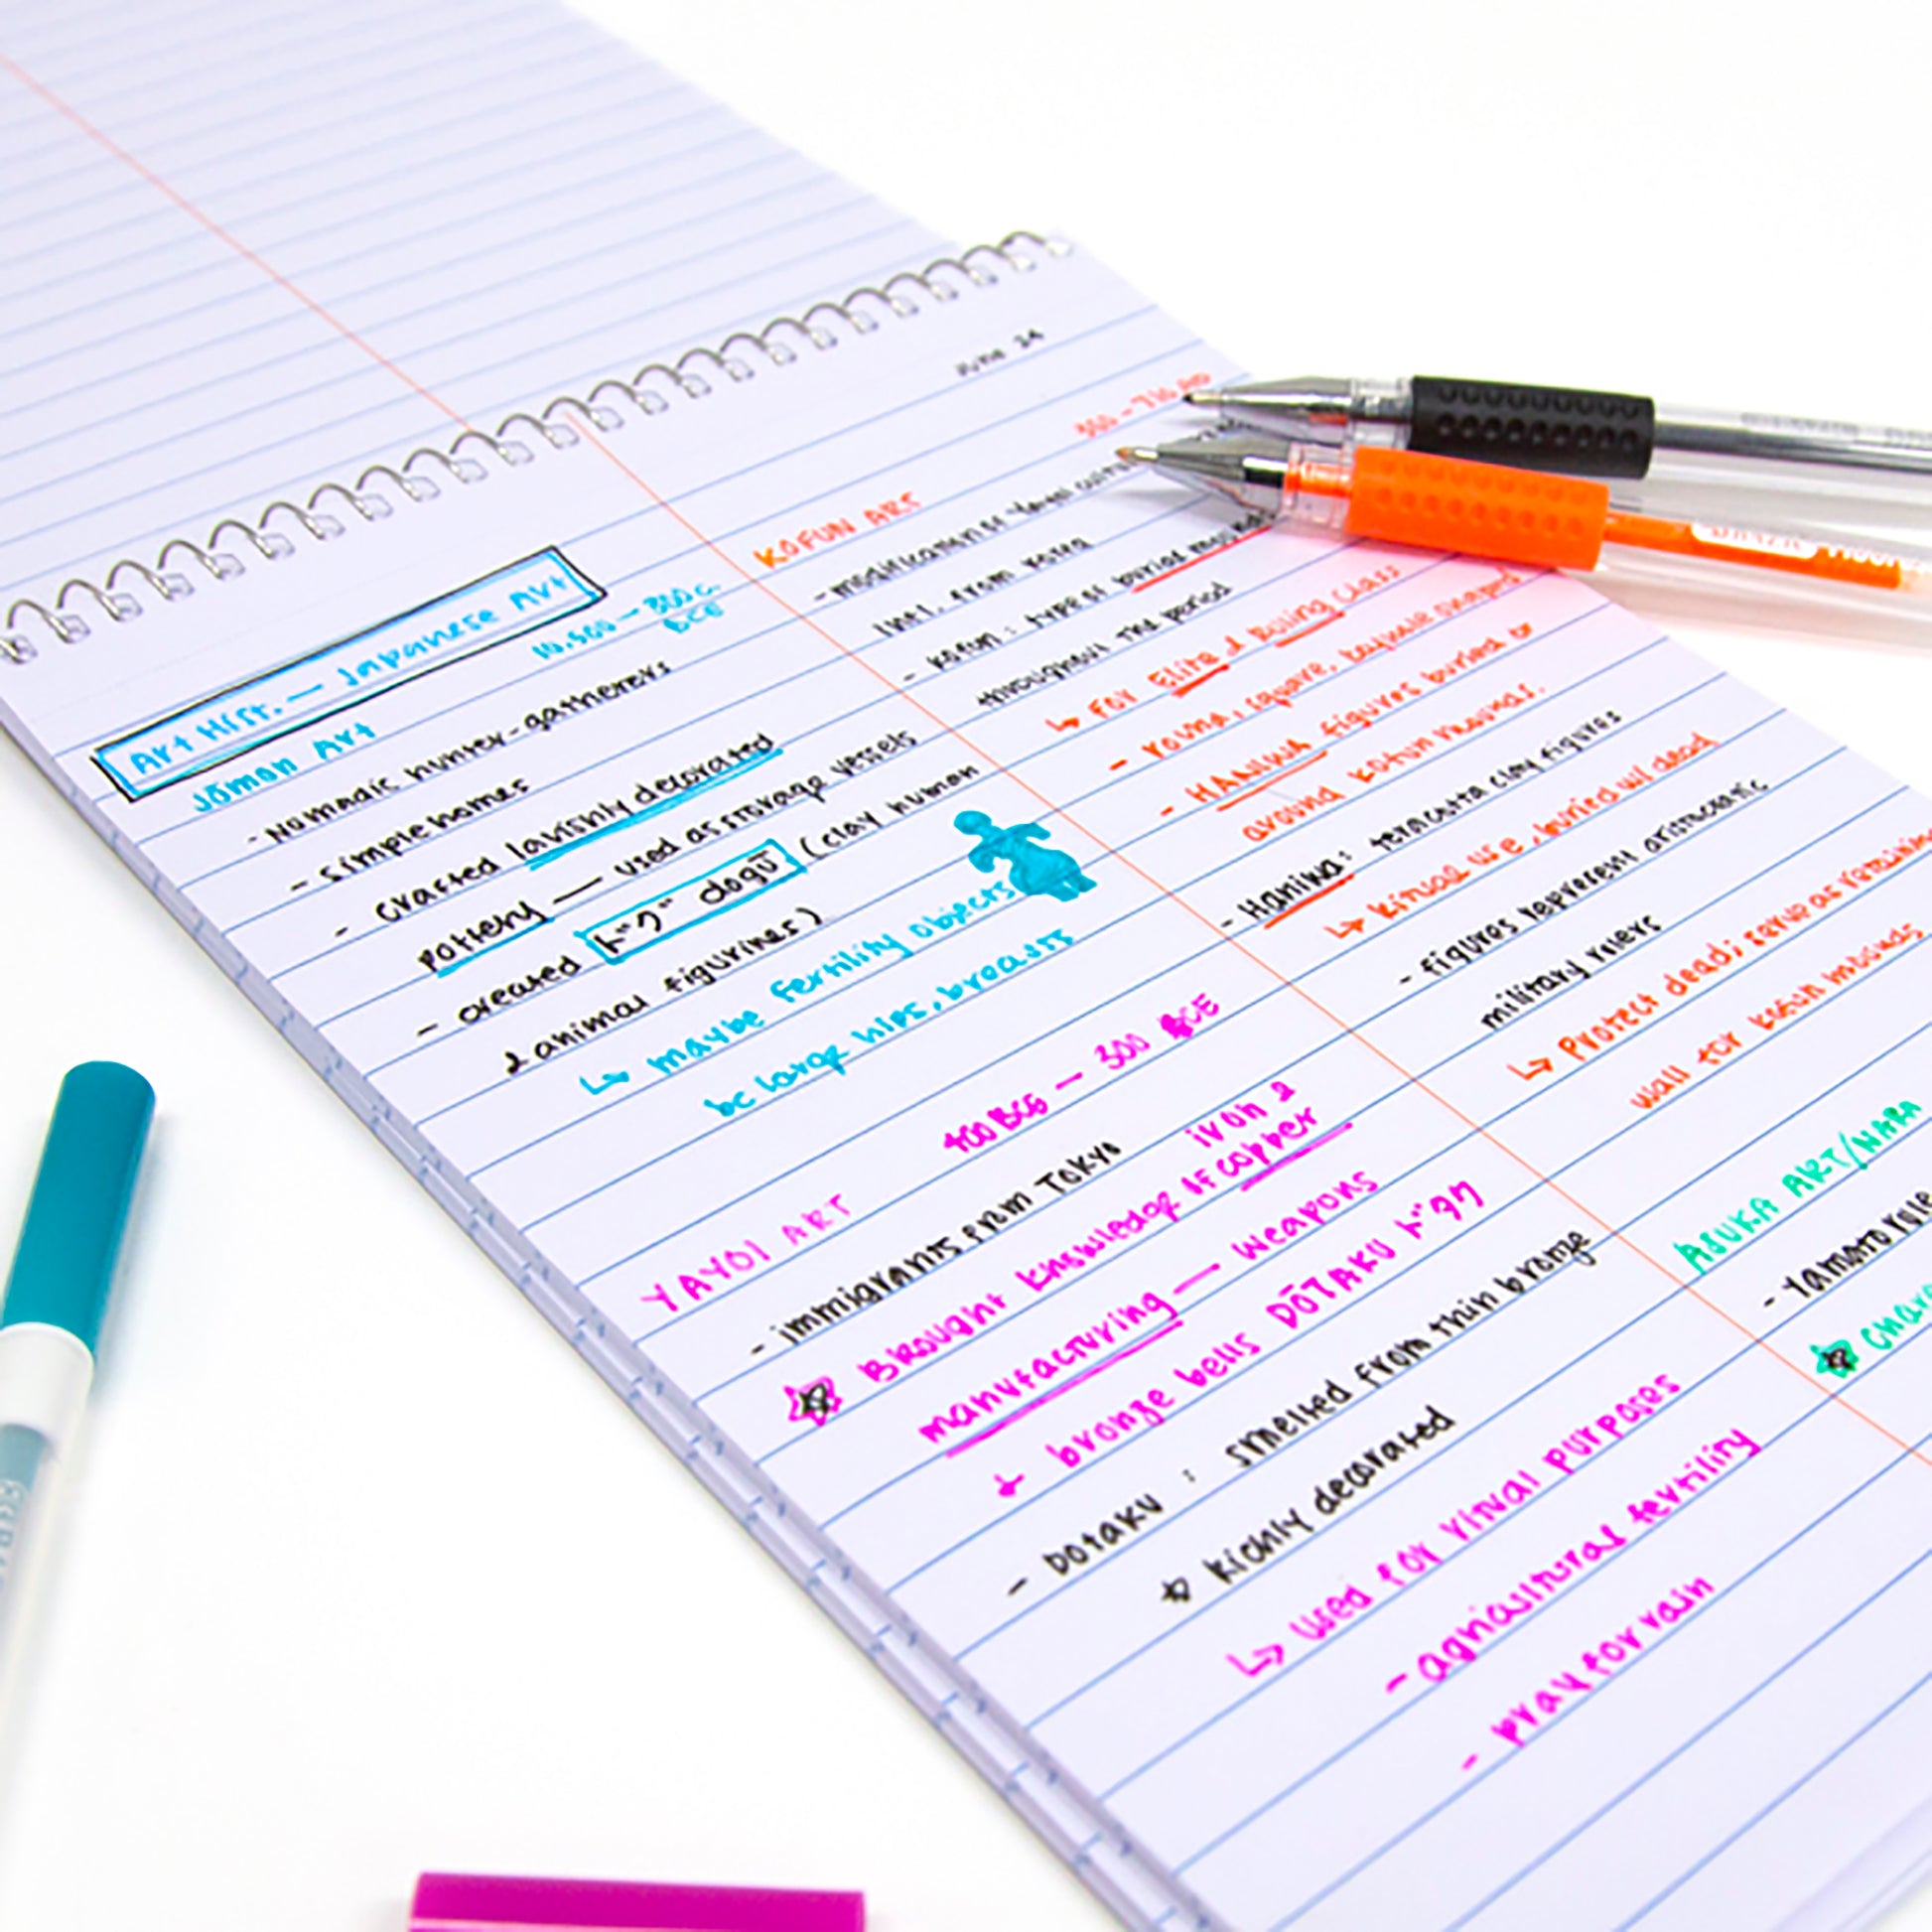 June 24
Art Hist. — Japanese Art
Jōmon Art
10,500 — 300 c.
BCE
- Nomadic hunter-gatherers
- simple homes
- crafted lavishly decorated
pottery — used as storage vessels
- created "ドグ" dogū (clay human
& animal figurines)
↳ maybe fertility objects
bc large hips, breasts
YAYOI ART
400 BCE — 300 BCE
- immigrants from Tokyo
iron &
☆ Brought knowledge of copper
manufacturing — weapons
+ bronze bells DŌTAKU
- Dotaku : smelted from thin bronze
☆ Richly decorated
↳ used for ritual purposes
- agricultural fertility
- pray for rain
KOFUN ARS
300 - 710 AD
- modification of Yayoi
Intl. from
- Kofun : type of burial
throughout the period
↳ For Elite & Ruling Class
- round, square, keyhole shaped
- HANIWA figures buried
around kofun mounds.
- Haniwa : terracotta clay figures
↳ Ritual use, buried w/ dead
- figures represent aristocratic
military rulers
↳ Protect dead; serve as retaining
wall for kofun mounds
ASUKA ART/NARA
- Yamato rule
☆